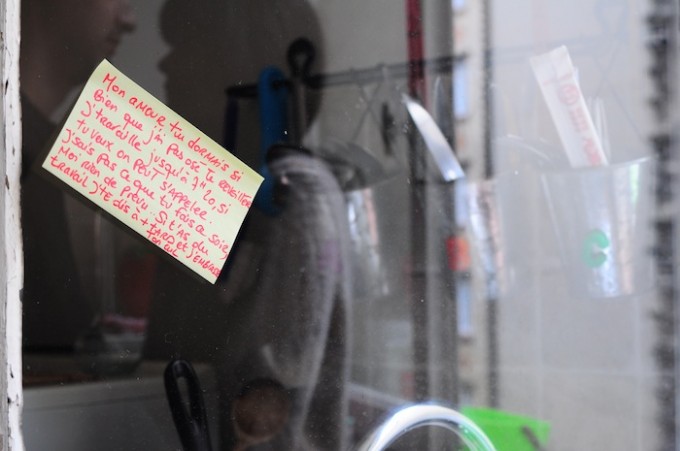 Mon amour tu dormais si
bien que j'ai pas osé te réveiller
j'travaille jusqu'à 7H20, si
tu veux on peut s'appeler..
j'sais pas ce que tu fais ce soir,
moi rien de prévu.. Si t'as du
travail j'te dis à + tard et j'embrasse
ton cul